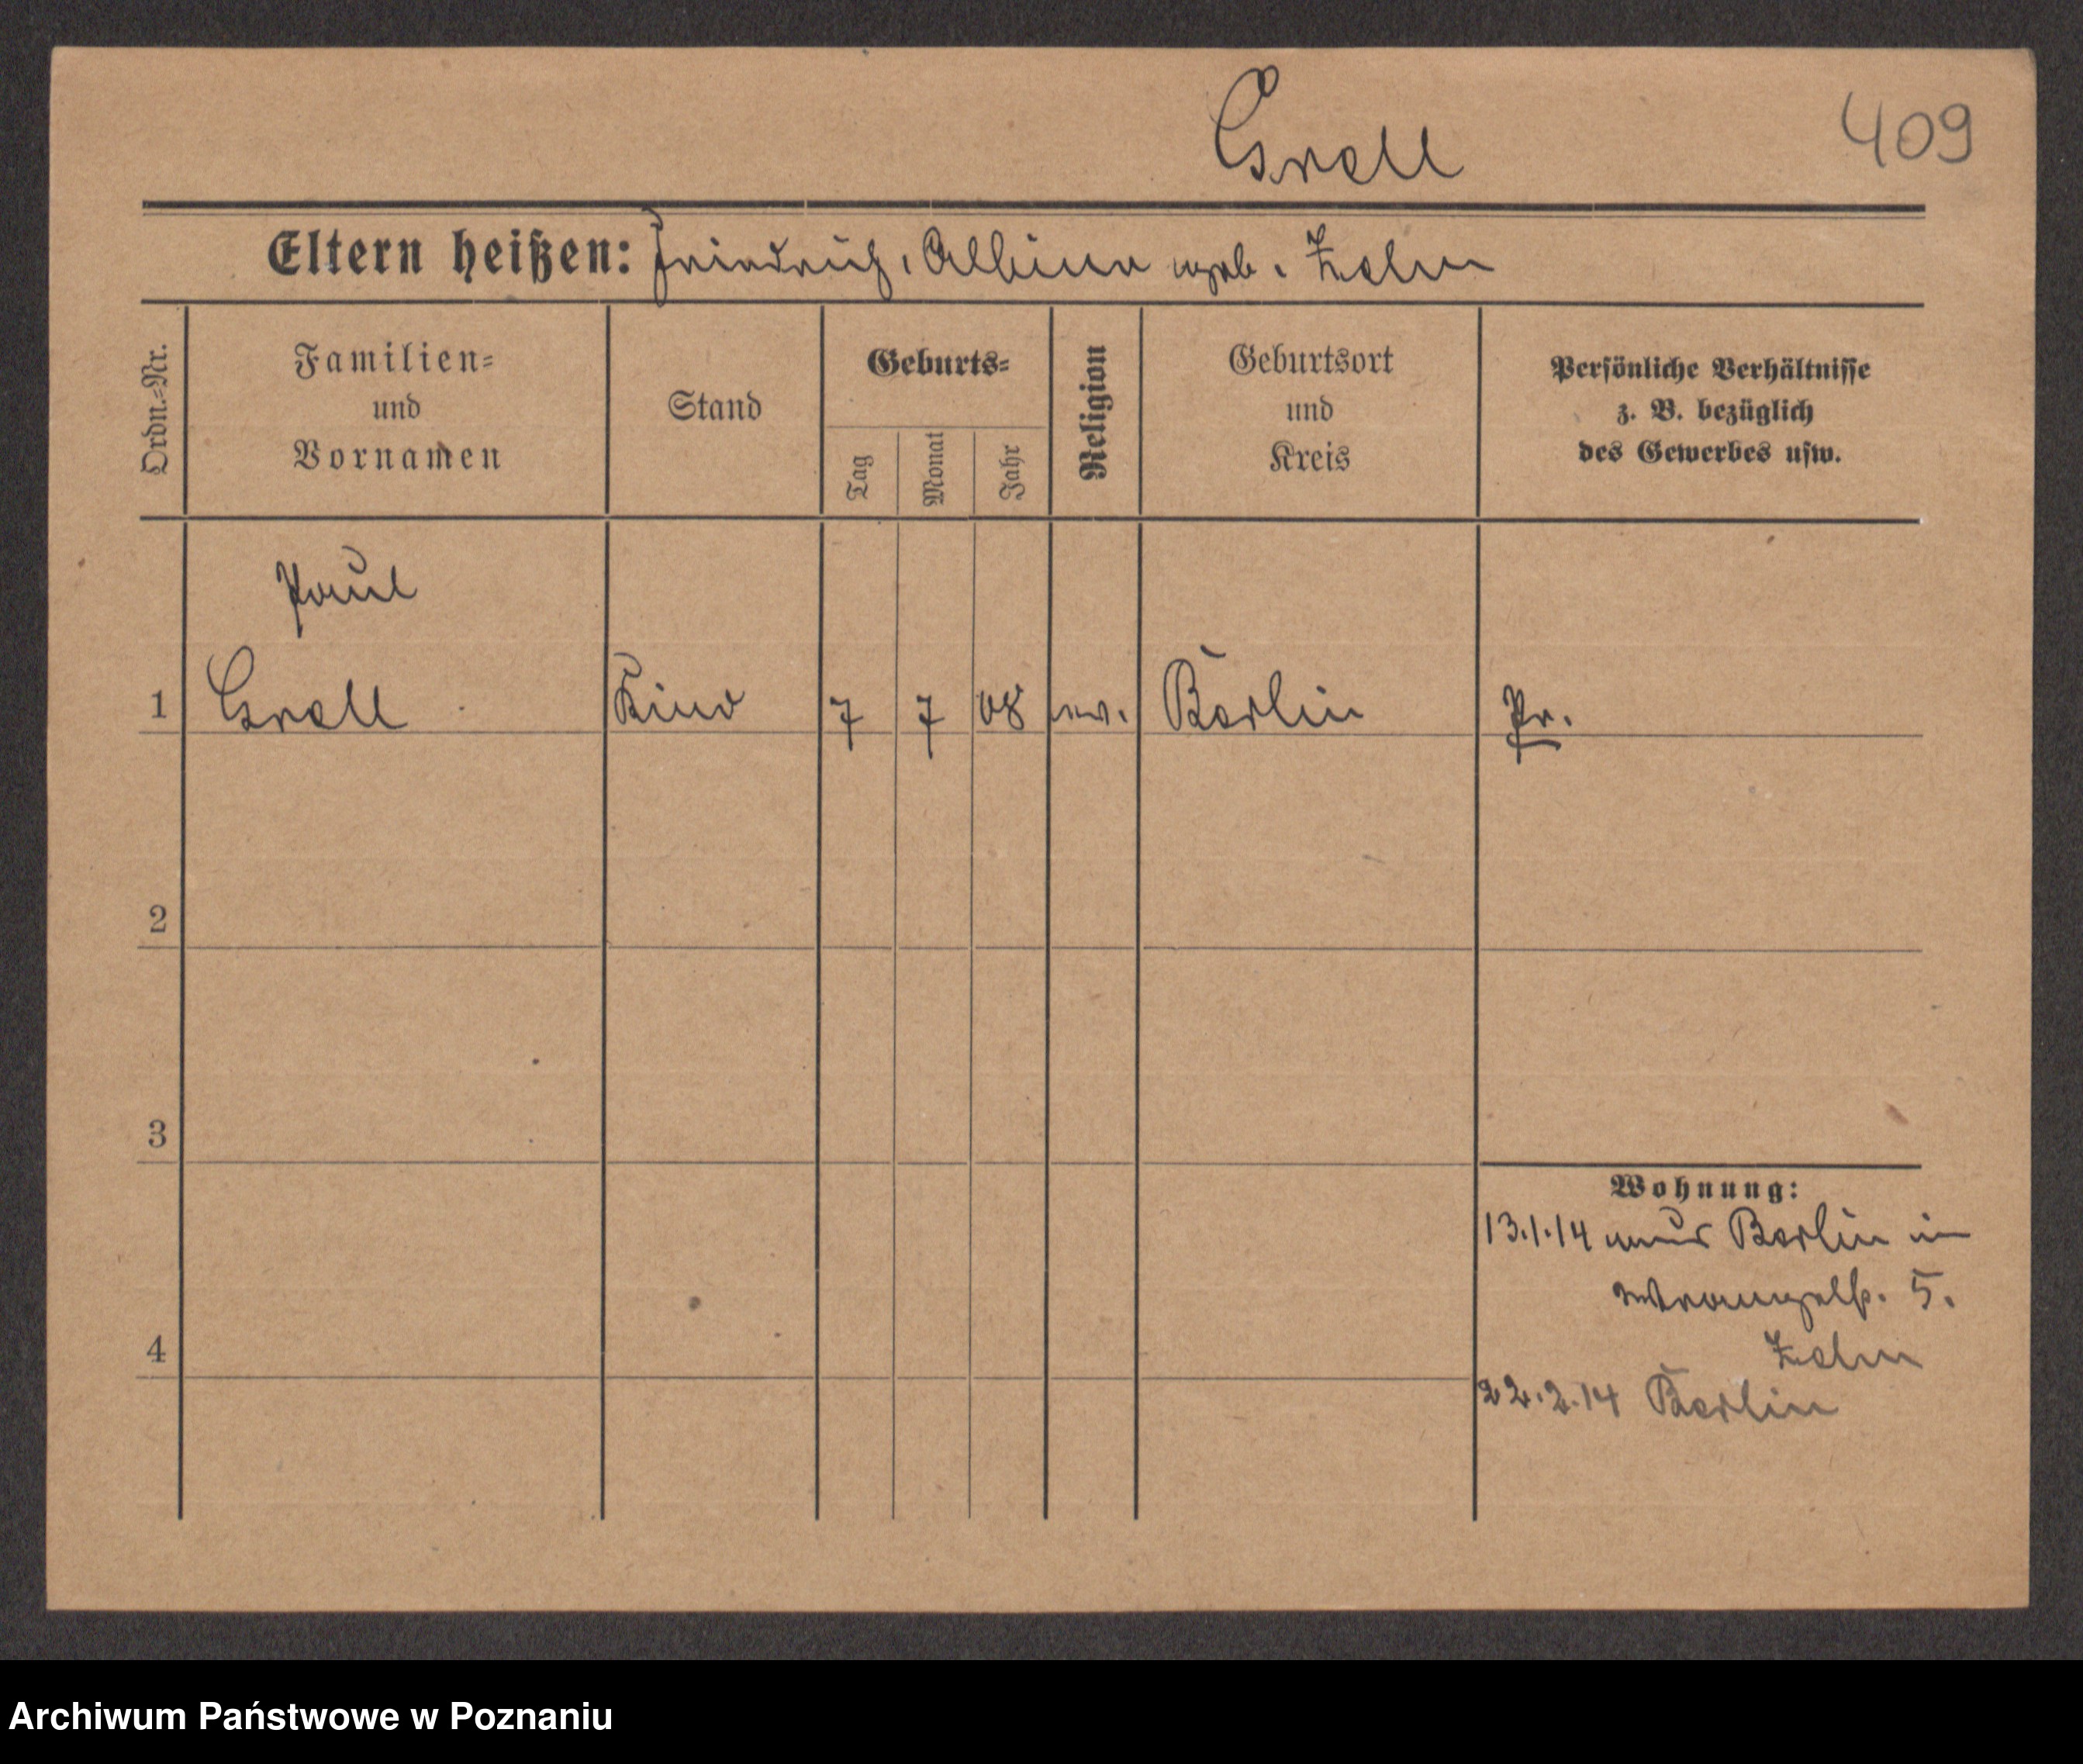 Grell
409
Eltern heißen: Friedrich, Albine geb. Zelm
Ordn.-Nr.
Familien-
und
Vornamen
Stand
Geburts-
Tag
Monat
Jahr
Religion
Geburtsort
und
Kreis
Persönliche Verhältnisse
z. B. bezüglich
des Gewerbes usw.
Paul
1 Grell Kind 7 7 08 ev. Berlin Pr.
2
3
Wohnung:
13.1.14 aus Berlin in
Wrangelstr. 5.
4
Zelm
22.2.14 Berlin
Archiwum Państwowe w Poznaniu